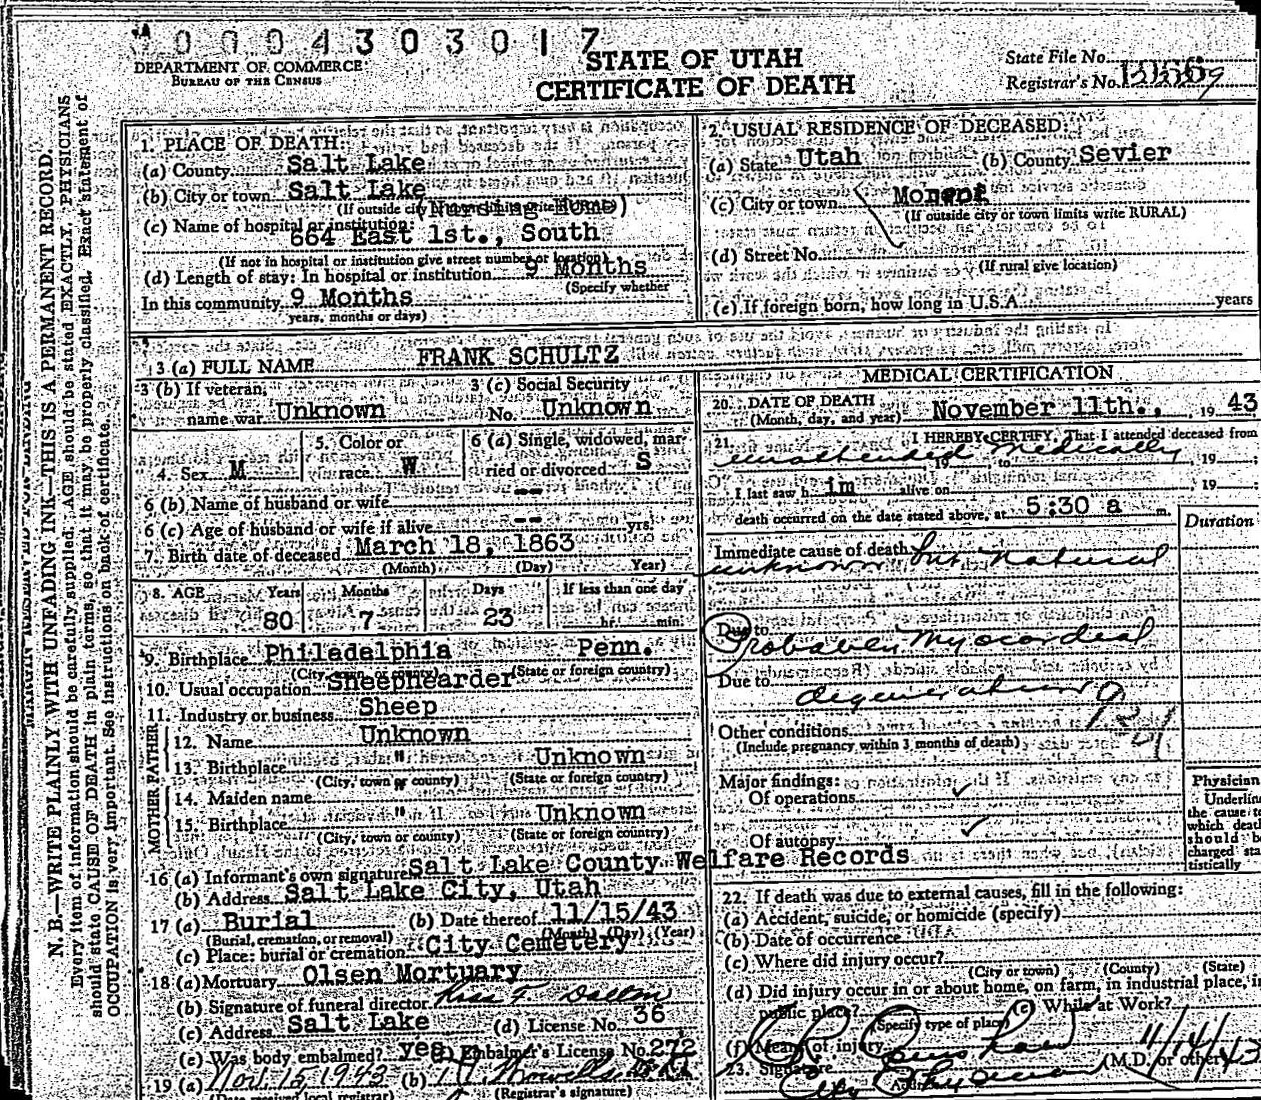 0004303017
DEPARTMENT OF COMMERCE
BUREAU OF THE CENSUS
STATE OF UTAH
CERTIFICATE OF DEATH
State File No.
Registrar's No.
N. B.—WRITE PLAINLY WITH UNFADING INK—THIS IS A PERMANENT RECORD.
Every item of information should be carefully supplied. AGE should be stated EXACTLY. PHYSICIANS
should state CAUSE OF DEATH in plain terms, so that it may be properly classified. Exact statement of
OCCUPATION is very important. See instructions on back of certificate.
1. PLACE OF DEATH:
(a) County Salt Lake
(b) City or town Salt Lake
(If outside city (Nursing Home)
(c) Name of hospital or institution:
664 East 1st., South
(If not in hospital or institution give street number or location)
(d) Length of stay: In hospital or institution 9 Months
(Specify whether
In this community 9 Months
years, months or days)
2. USUAL RESIDENCE OF DECEASED:
(a) State Utah (b) County Sevier
(c) City or town
(If outside city or town limits write RURAL)
(d) Street No.
(If rural give location)
(e) If foreign born, how long in U.S.A. years
3 (a) FULL NAME FRANK SCHULTZ
3 (b) If veteran,
name war Unknown
3 (c) Social Security
No. Unknown
4. Sex M
5. Color or
race W
6 (a) Single, widowed, mar-
ried or divorced S
6 (b) Name of husband or wife --
6 (c) Age of husband or wife if alive -- yrs.
7. Birth date of deceased March 18, 1863
(Month) (Day) Year)
8. AGE Years Months Days If less than one day
80 7 23 hr. min.
9. Birthplace Philadelphia Penn.
(City, town or county) (State or foreign country)
10. Usual occupation Sheephearder
11. Industry or business Sheep
FATHER
12. Name Unknown
13. Birthplace " Unknown
(City, town or county) (State or foreign country)
MOTHER
14. Maiden name "
15. Birthplace " Unknown
(City, town or county) (State or foreign country)
16 (a) Informant's own signature Salt Lake County Welfare Records
(b) Address Salt Lake City, Utah
17 (a) Burial (b) Date thereof 11/15/43
(Burial, cremation, or removal) (Month) (Day) (Year)
(c) Place: burial or cremation City Cemetery
18 (a) Mortuary Olsen Mortuary
(b) Signature of funeral director
(c) Address Salt Lake (d) License No. 36
(e) Was body embalmed? yes Embalmer's License No. 272
19 (a) Nov. 15, 1943 (b)
(Date received local registrar) (Registrar's signature)
MEDICAL CERTIFICATION
20. DATE OF DEATH
(Month, day, and year) November 11th., 19 43
21. I HEREBY CERTIFY, That I attended deceased from
unattended Medically 19 , to , 19 ;
I last saw h im alive on , 19 ;
death occurred on the date stated above, at 5:30 a m.
Duration
Immediate cause of death
unknown but natural
Due to
Probably Myocardeal
Due to
degeneration
Other conditions
(Include pregnancy within 3 months of death)
Major findings:
Of operations
Of autopsy
Physician
Underlin
the cause to
which deat
should b
charged sta
tistically
22. If death was due to external causes, fill in the following:
(a) Accident, suicide, or homicide (specify)
(b) Date of occurrence
(c) Where did injury occur?
(City or town) (County) (State)
(d) Did injury occur in or about home, on farm, in industrial place, i
public place? (e) While at Work?
(Specify type of place)
(f) Means of injury 11/14/43
23. Signature (M.D. or other)
City Physician